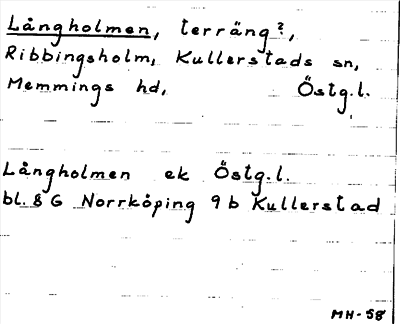 Långholmen, terräng?,
Ribbingsholm, Kullerstads sn,
Memmings hd, Östg.l.
Långholmen ek Östg.l.
bl. 8 G Norrköping 9 b Kullerstad
MH-58